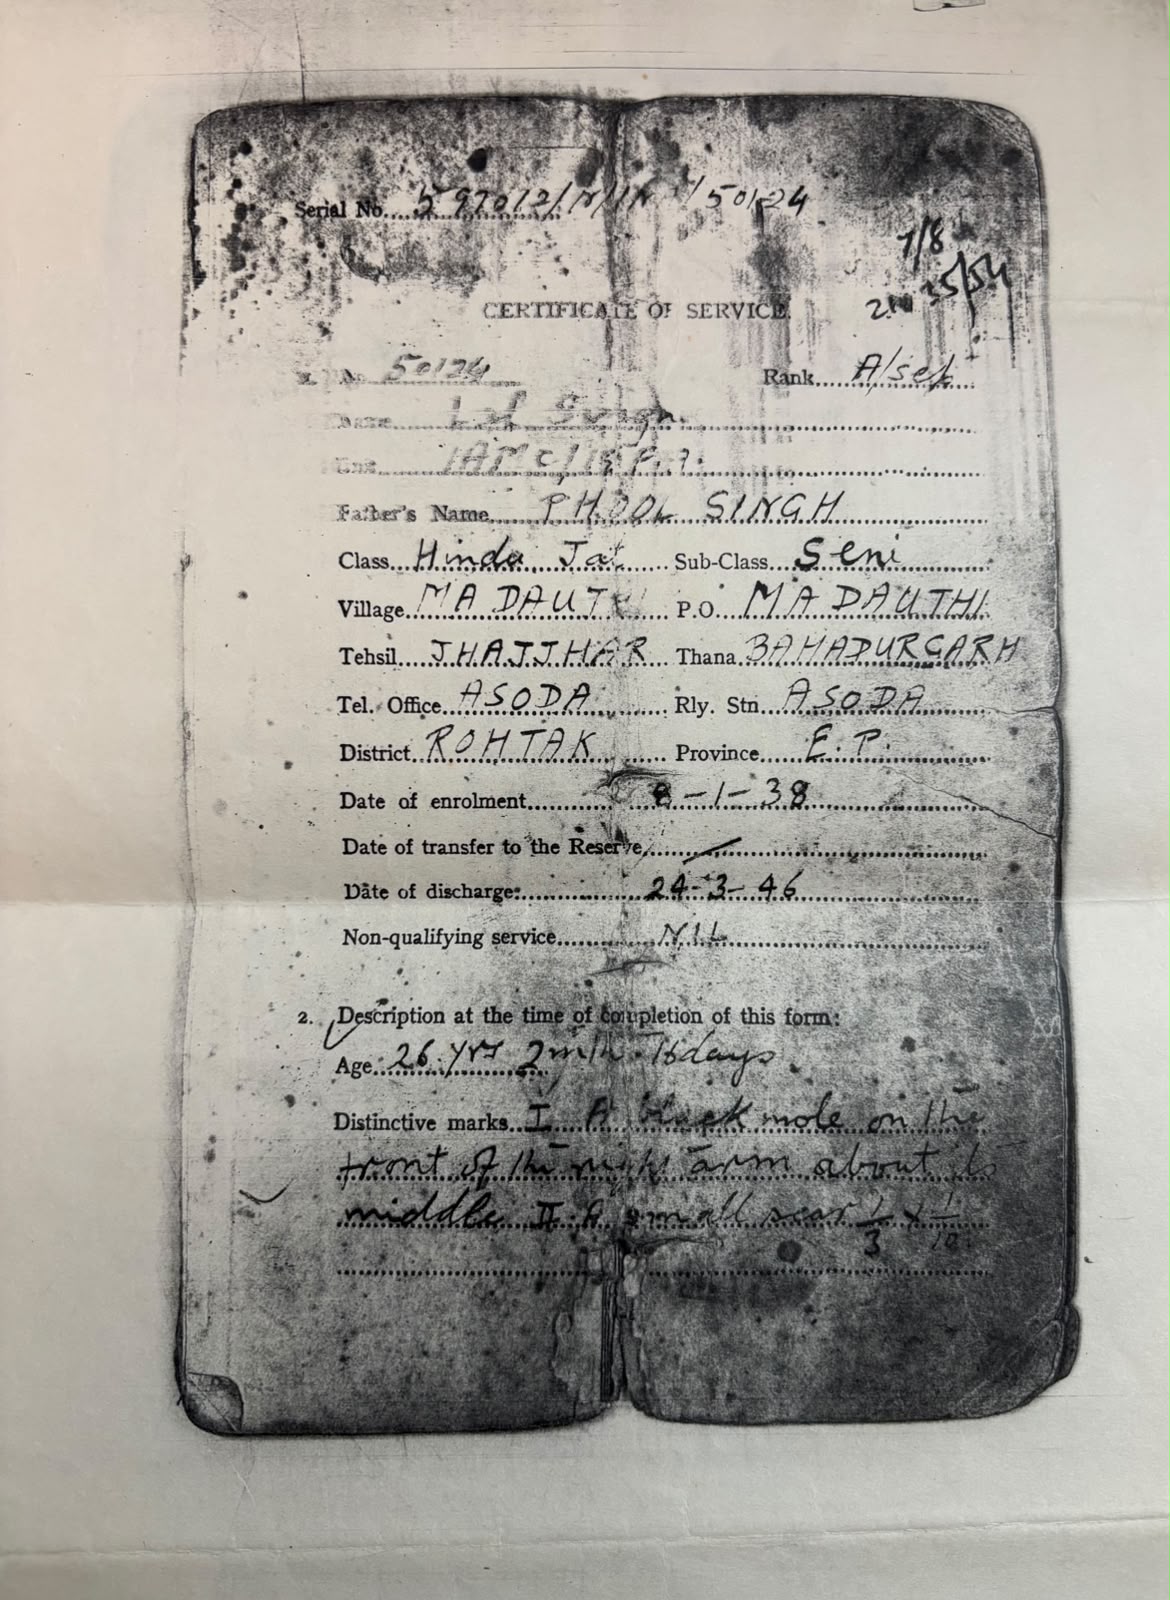 Serial No. 597013/N/IN 50124
1/8
25/54
CERTIFICATE OF SERVICE.
No. 50124 Rank A/sep
Name Singh
Unit IAMC
Father's Name PHOOL SINGH
Class Hindu Jat Sub-Class Seni
Village MADAUTHI P.O. MADAUTHI
Tehsil JHAJJHAR Thana BAHADURGARH
Tel. Office ASODA Rly. Stn. ASODA
District ROHTAK Province E. P.
Date of enrolment 8-1-38
Date of transfer to the Reserve
Date of discharge: 24-3-46
Non-qualifying service NIL
2. Description at the time of completion of this form:
Age: 26 yrs 2 mth 16 days
Distinctive marks I. A black mole on the
front of the right arm about its
middle II. A small scar 1/3 x 1/10